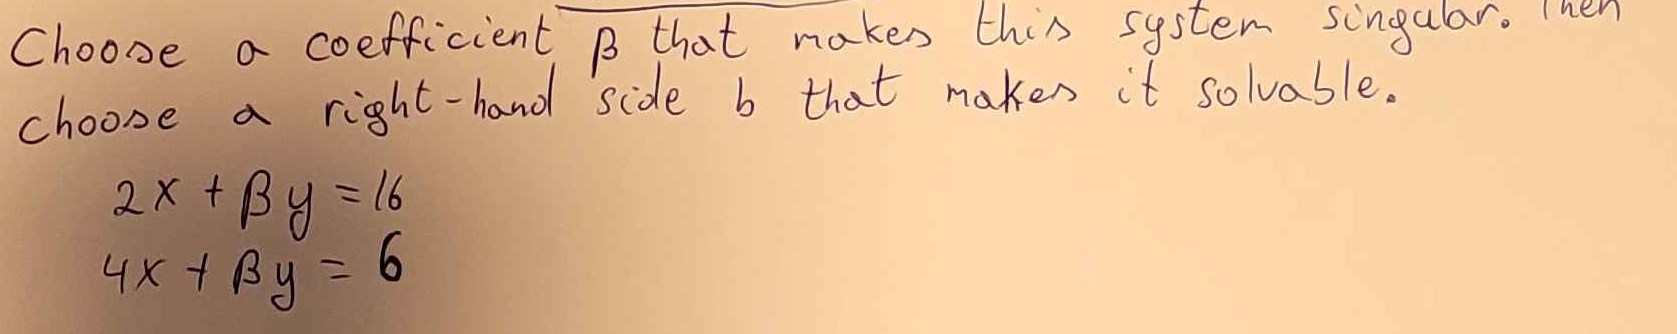 Choose a coefficient β that makes this system singular. Then
choose a right-hand side b that makes it solvable.
2x + βy = 16
4x + βy = 6